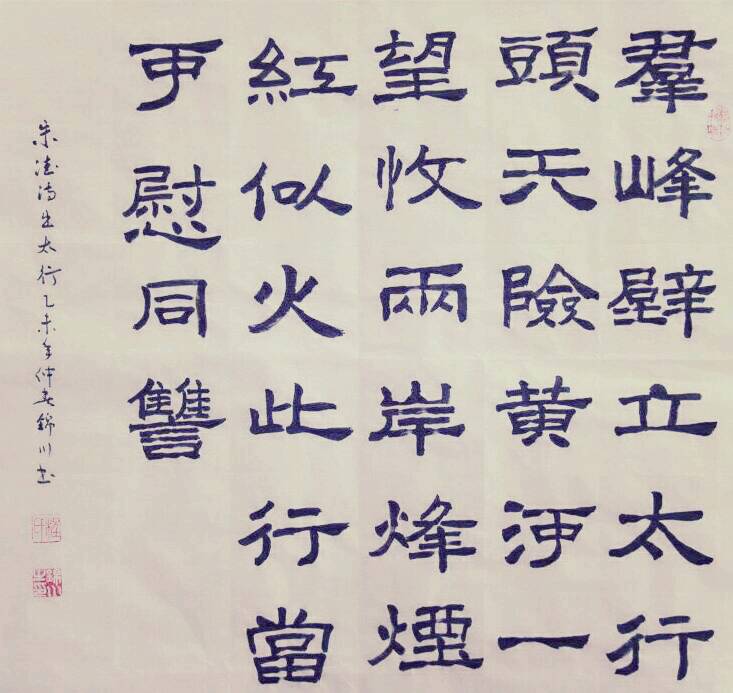 羣峰壁立太行
頭天險黄河一
望收兩岸烽煙
紅似火此行當
可慰同讐
朱德诗出太行乙未年仲春錦川书